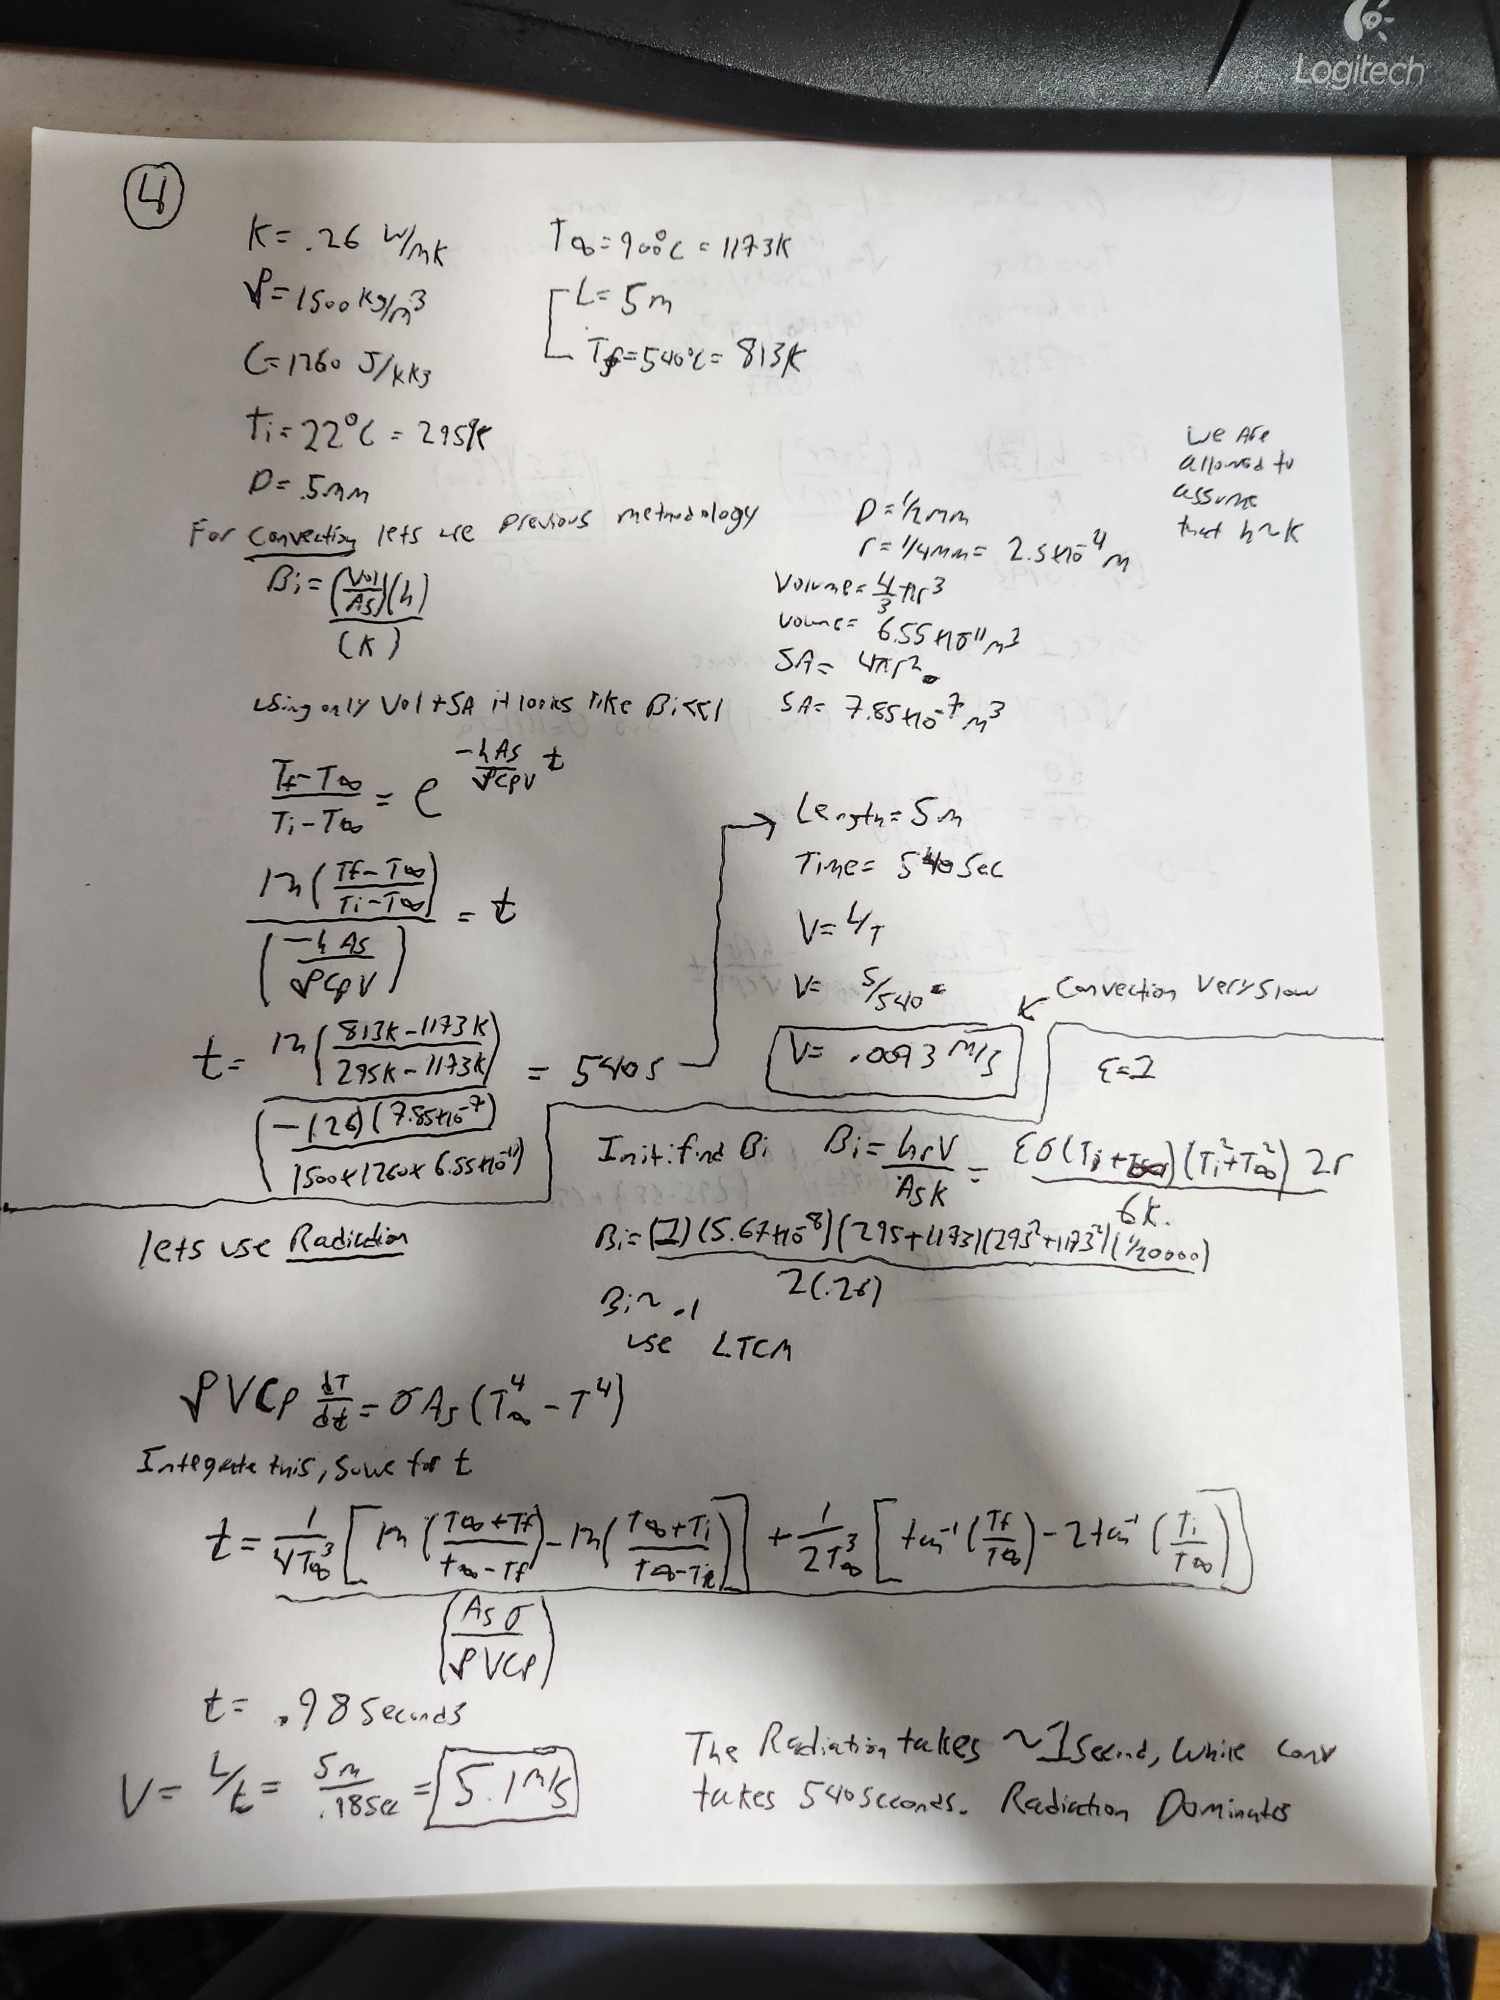 Logitech
4
K = .26 W/mK
ρ = 1500 kg/m³
C = 1260 J/kKg
Ti = 22°C = 295K
D = .5mm
T∞ = 900°C = 1173K
L = 5m
Tf = 540°C = 813K
we are
allowed to
assume
that h~K
For Convection lets use previous methodology
Bi = (Vol/As)(h)/(K)
using only Vol + SA it looks like Bi<<1
D = 1/2mm
r = 1/4mm = 2.5*10⁻⁴ m
Volume = 4/3 πr³
volume = 6.55*10⁻¹¹ m³
SA = 4πr²
SA = 7.85*10⁻⁷ m³
(Tf - T∞)/(Ti - T∞) = e^(-hAs/(ρCpV) t)
ln((Tf - T∞)/(Ti - T∞))/(-hAs/(ρCpV)) = t
t = ln((813K - 1173K)/(295K - 1173K))/(-(.26)(7.85*10⁻⁷)/(1500*1260*6.55*10⁻¹¹)) = 540s
Length = 5m
Time = 540 Sec
V = L/T
V = 5/540
V = .0093 m/s
Convection Very Slow
lets use Radiation
ε=1
Init: find Bi Bi = hrV/AsK = εσ(Ti+T∞)(Ti²+T∞²) 2r/6K.
Bi = (1)(5.67*10⁻⁸)(295+1173)(293²+1173²)(1/20000)/2(.26)
Bi ~ .1
use LTCM
ρVCp dT/dt = σAs(T∞⁴ - T⁴)
Integrate this, solve for t
t = 1/4T∞³ [ln((T∞+Tf)/(T∞-Tf)) - ln((T∞+Ti)/(T∞-Ti))] + 1/2T∞³ [tan⁻¹(Tf/T∞) - 2tan⁻¹(Ti/T∞)]
(Asσ/ρVCp)
t = .98 Seconds
V = L/t = 5m/.98sec = 5.1 m/s
The Radiation takes ~1second, while conv
takes 540 seconds. Radiation Dominates